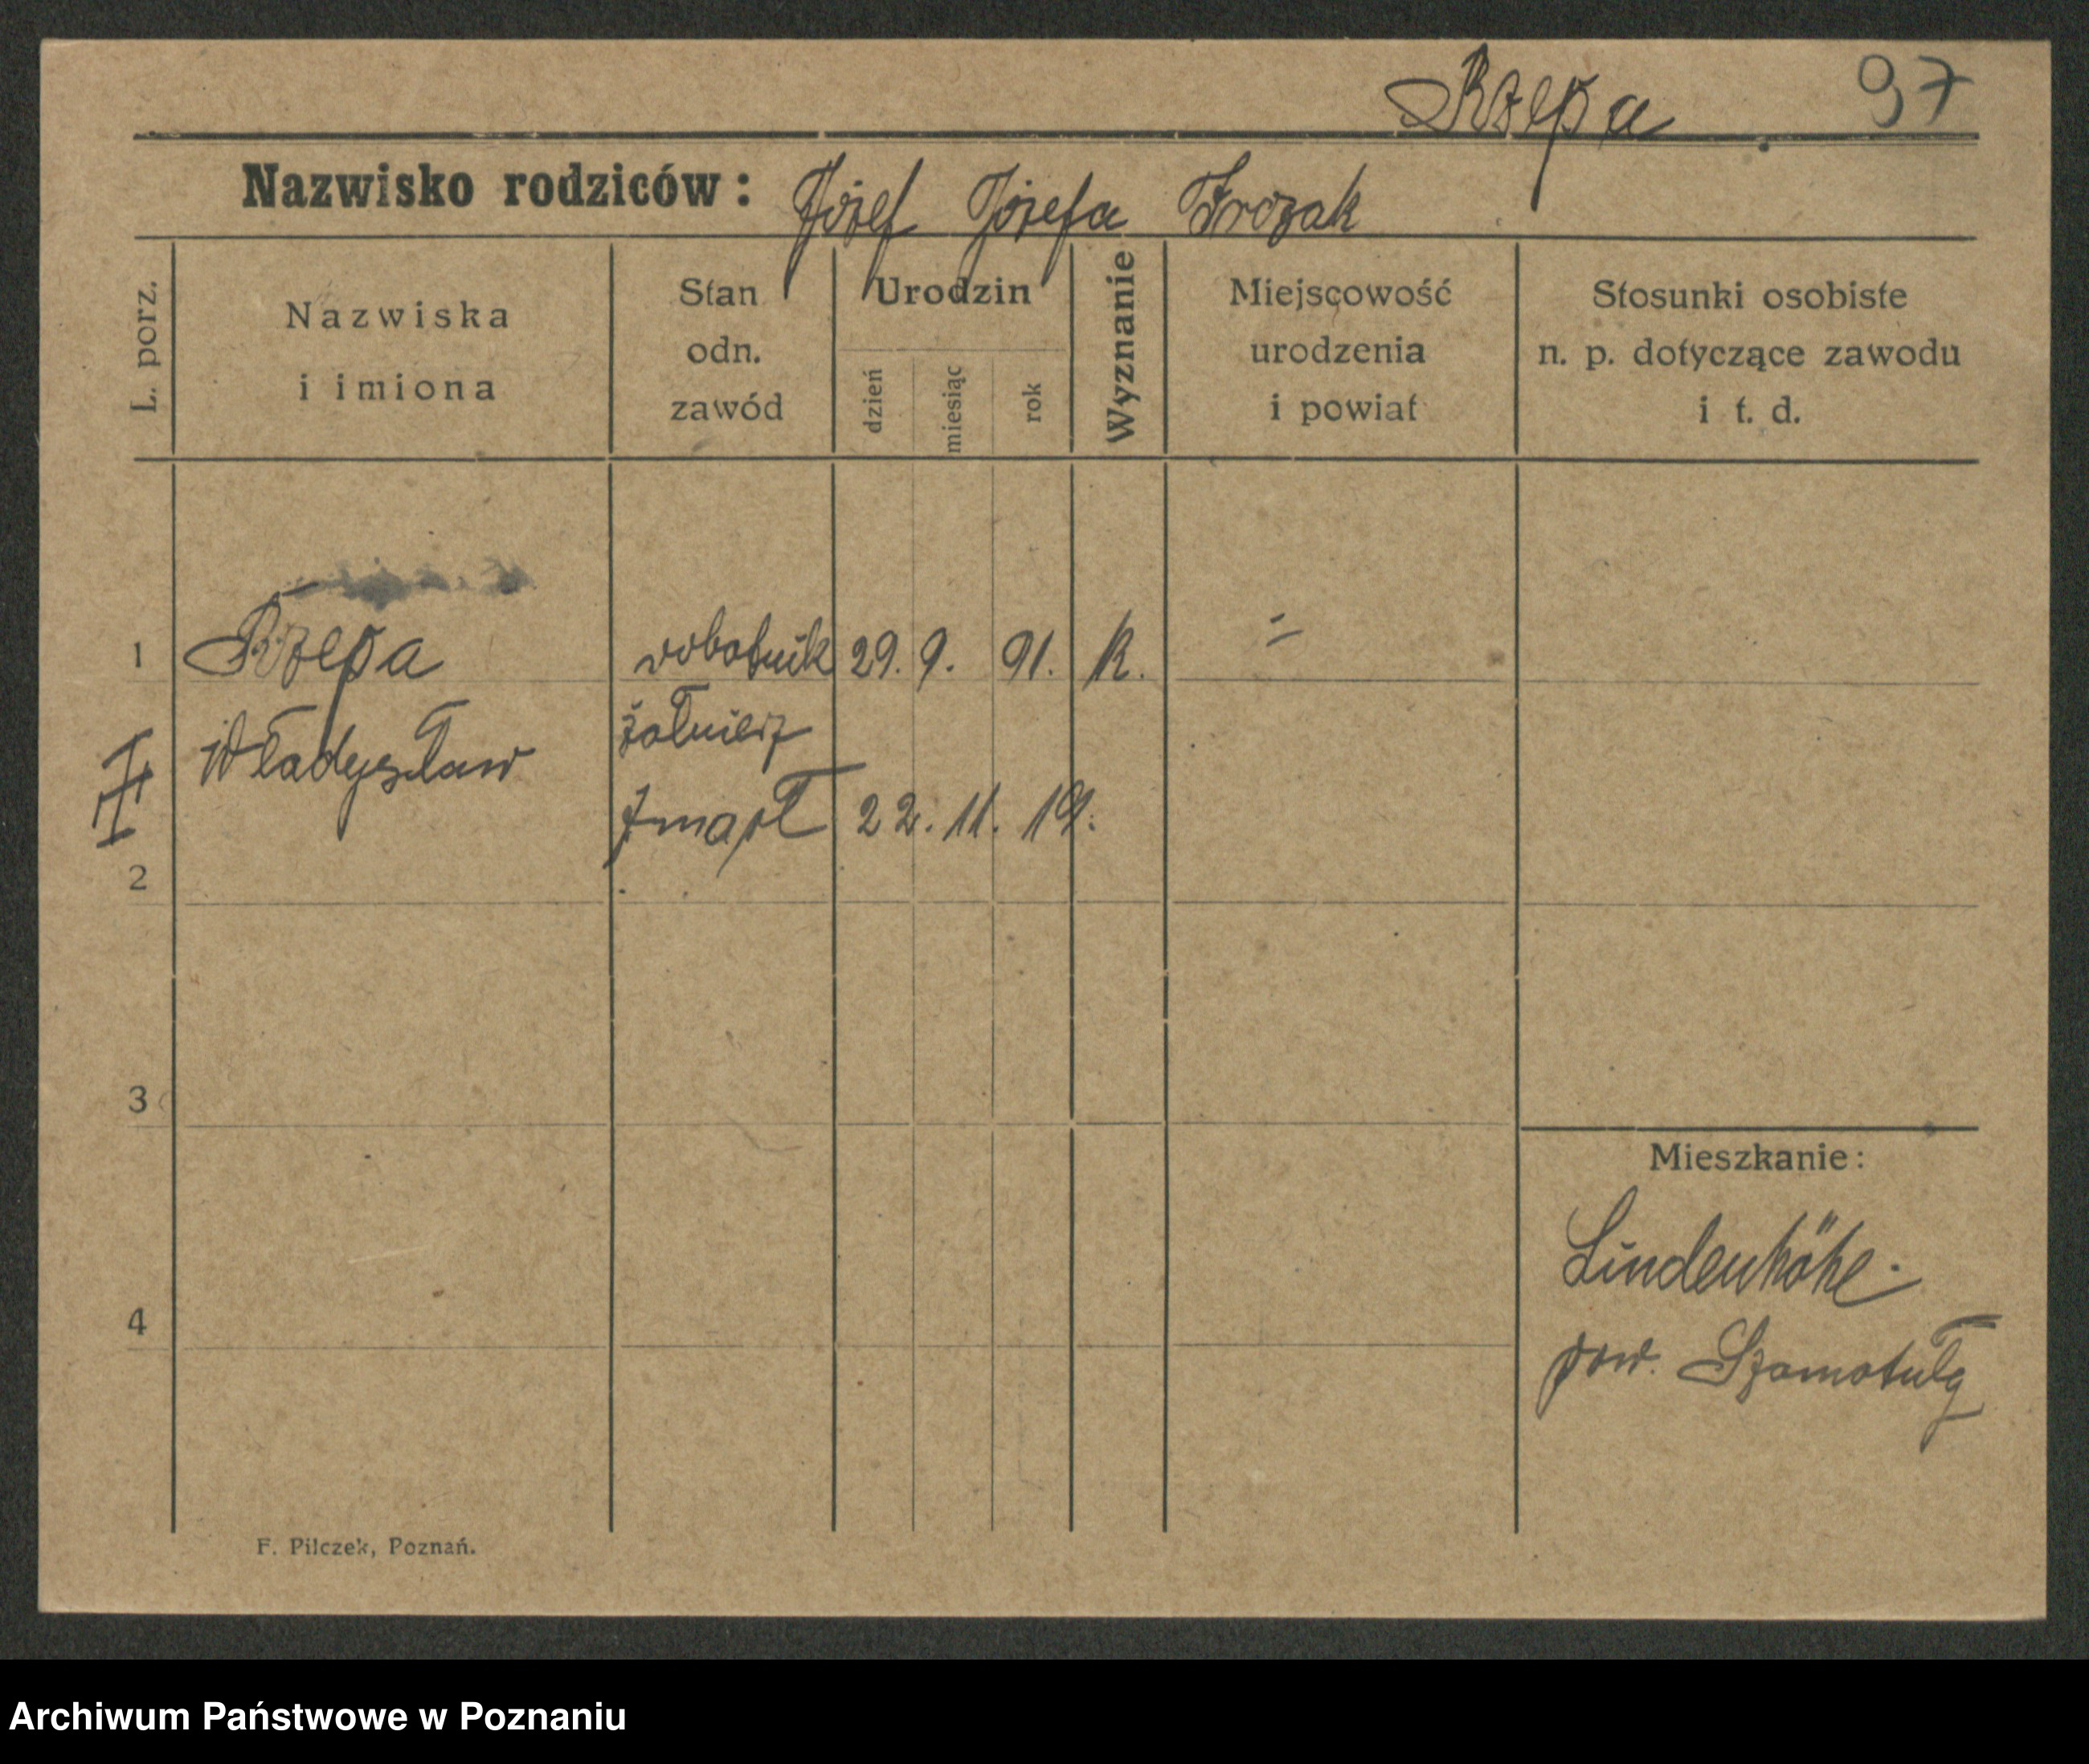 Rzepa 97
Nazwisko rodziców: Józef Józefa
L. porz.
Nazwiska
i imiona
Stan
odn.
zawód
Urodzin
dzień
miesiąc
rok
Wyznanie
Miejscowość
urodzenia
i powiat
Stosunki osobiste
n. p. dotyczące zawodu
i t. d.
1 Rzepa robotnik 29. 9. 91. K. =
II Władysław żołnierz
zmarł 22. 11. 19.
2
3
4
Mieszkanie:
Lindenhöhe.
pow. Szamotuły
F. Pilczek, Poznań.
Archiwum Państwowe w Poznaniu